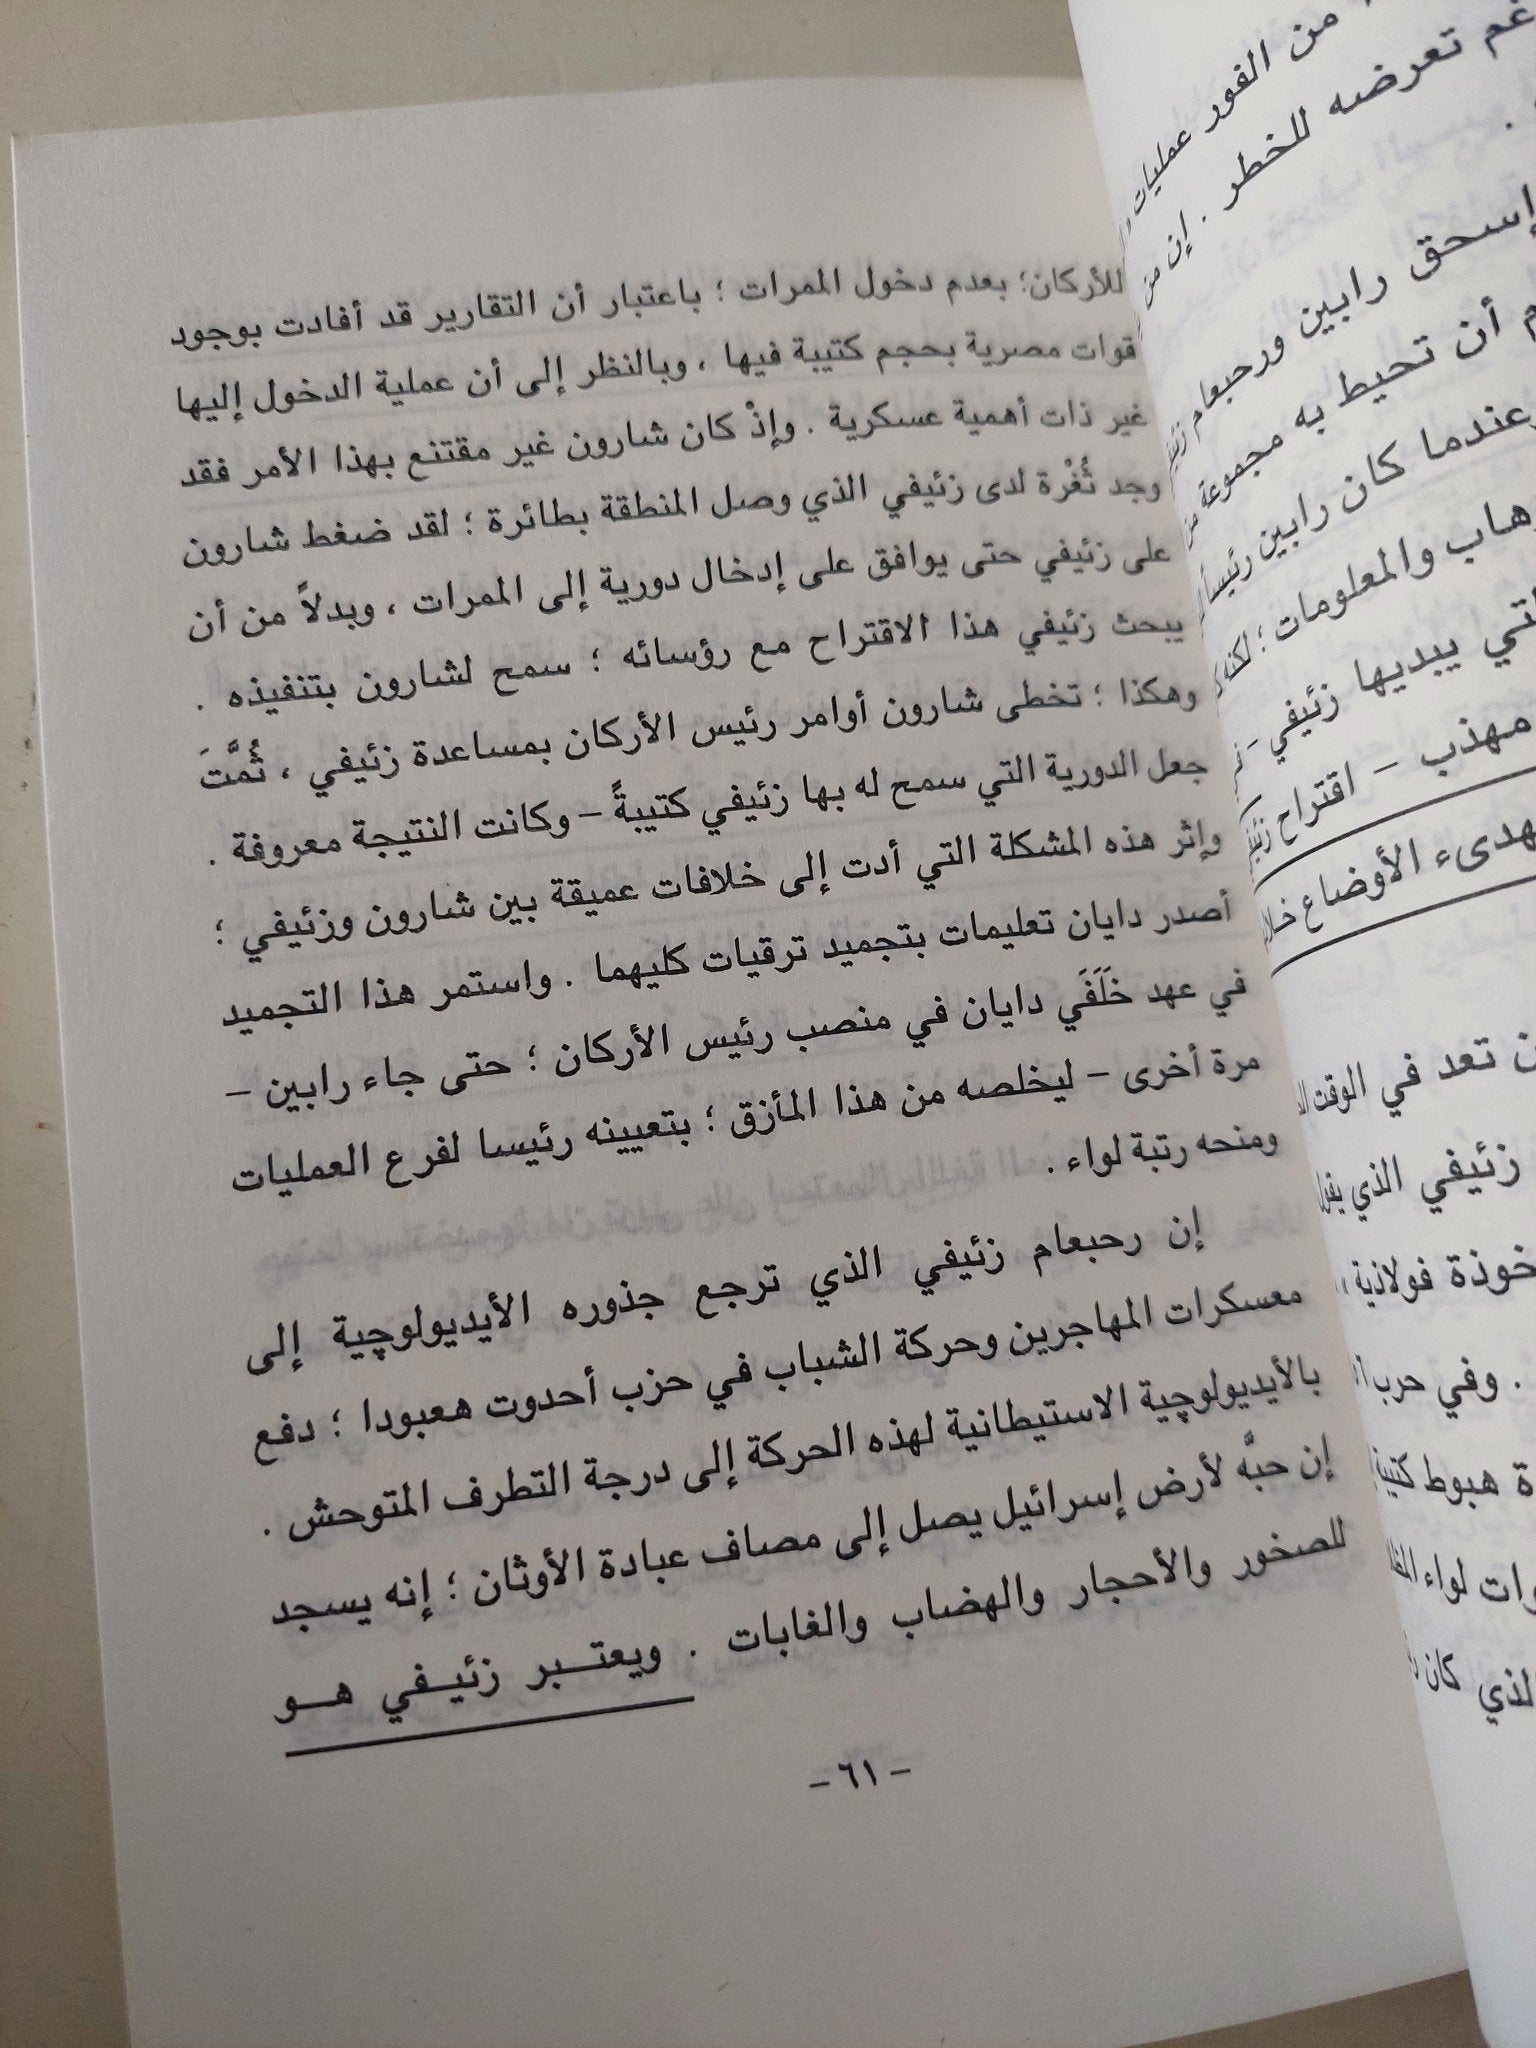 للأركان؛ بعدم دخول الممرات ؛ باعتبار أن التقارير قد أفادت بوجود
قوات مصرية بحجم كتيبة فيها ، وبالنظر إلى أن عملية الدخول إليها
غير ذات أهمية عسكرية . وإذْ كان شارون غير مقتنع بهذا الأمر فقد
وجد ثُغْرة لدى زئيفي الذي وصل المنطقة بطائرة ؛ لقد ضغط شارون
على زئيفي حتى يوافق على إدخال دورية إلى الممرات ، وبدلاً من أن
يبحث زئيفي هذا الاقتراح مع رؤسائه ؛ سمح لشارون بتنفيذه .
وهكذا ؛ تخطى شارون أوامر رئيس الأركان بمساعدة زئيفي ، ثُمَّتَ
جعل الدورية التي سمح له بها زئيفي كتيبةً – وكانت النتيجة معروفة .
وإثر هذه المشكلة التي أدت إلى خلافات عميقة بين شارون وزئيفي ؛
أصدر دايان تعليمات بتجميد ترقيات كليهما . واستمر هذا التجميد
في عهد خَلَفَي دايان في منصب رئيس الأركان ؛ حتى جاء رابين –
مرة أخرى – ليخلصه من هذا المأزق ؛ بتعيينه رئيسا لفرع العمليات
ومنحه رتبة لواء .
إن رحبعام زئيفي الذي ترجع جذوره الأيديولوچية إلى
معسكرات المهاجرين وحركة الشباب في حزب أحدوت هعبودا ؛ دفع
بالأيديولوچية الاستيطانية لهذه الحركة إلى درجة التطرف المتوحش .
إن حبَّه لأرض إسرائيل يصل إلى مصاف عبادة الأوثان ؛ إنه يسجد
للصخور والأحجار والهضاب والغابات . ويعتبر زئيفي هو
– ٦١ –
من الفور عمليات
تعرضه للخطر . إن من
إسحق رابين ورحبعام
أن تحيط به مجموعة من
عندما كان رابين رئيساً
والمعلومات ؛ لكنه
يبديها زئيفي –
مهذب – اقتراح
الأوضاع
تعد في الوقت
زئيفي الذي يقول
خوذة فولاذية
. وفي حرب
هبوط كتيبة
لواء
كان